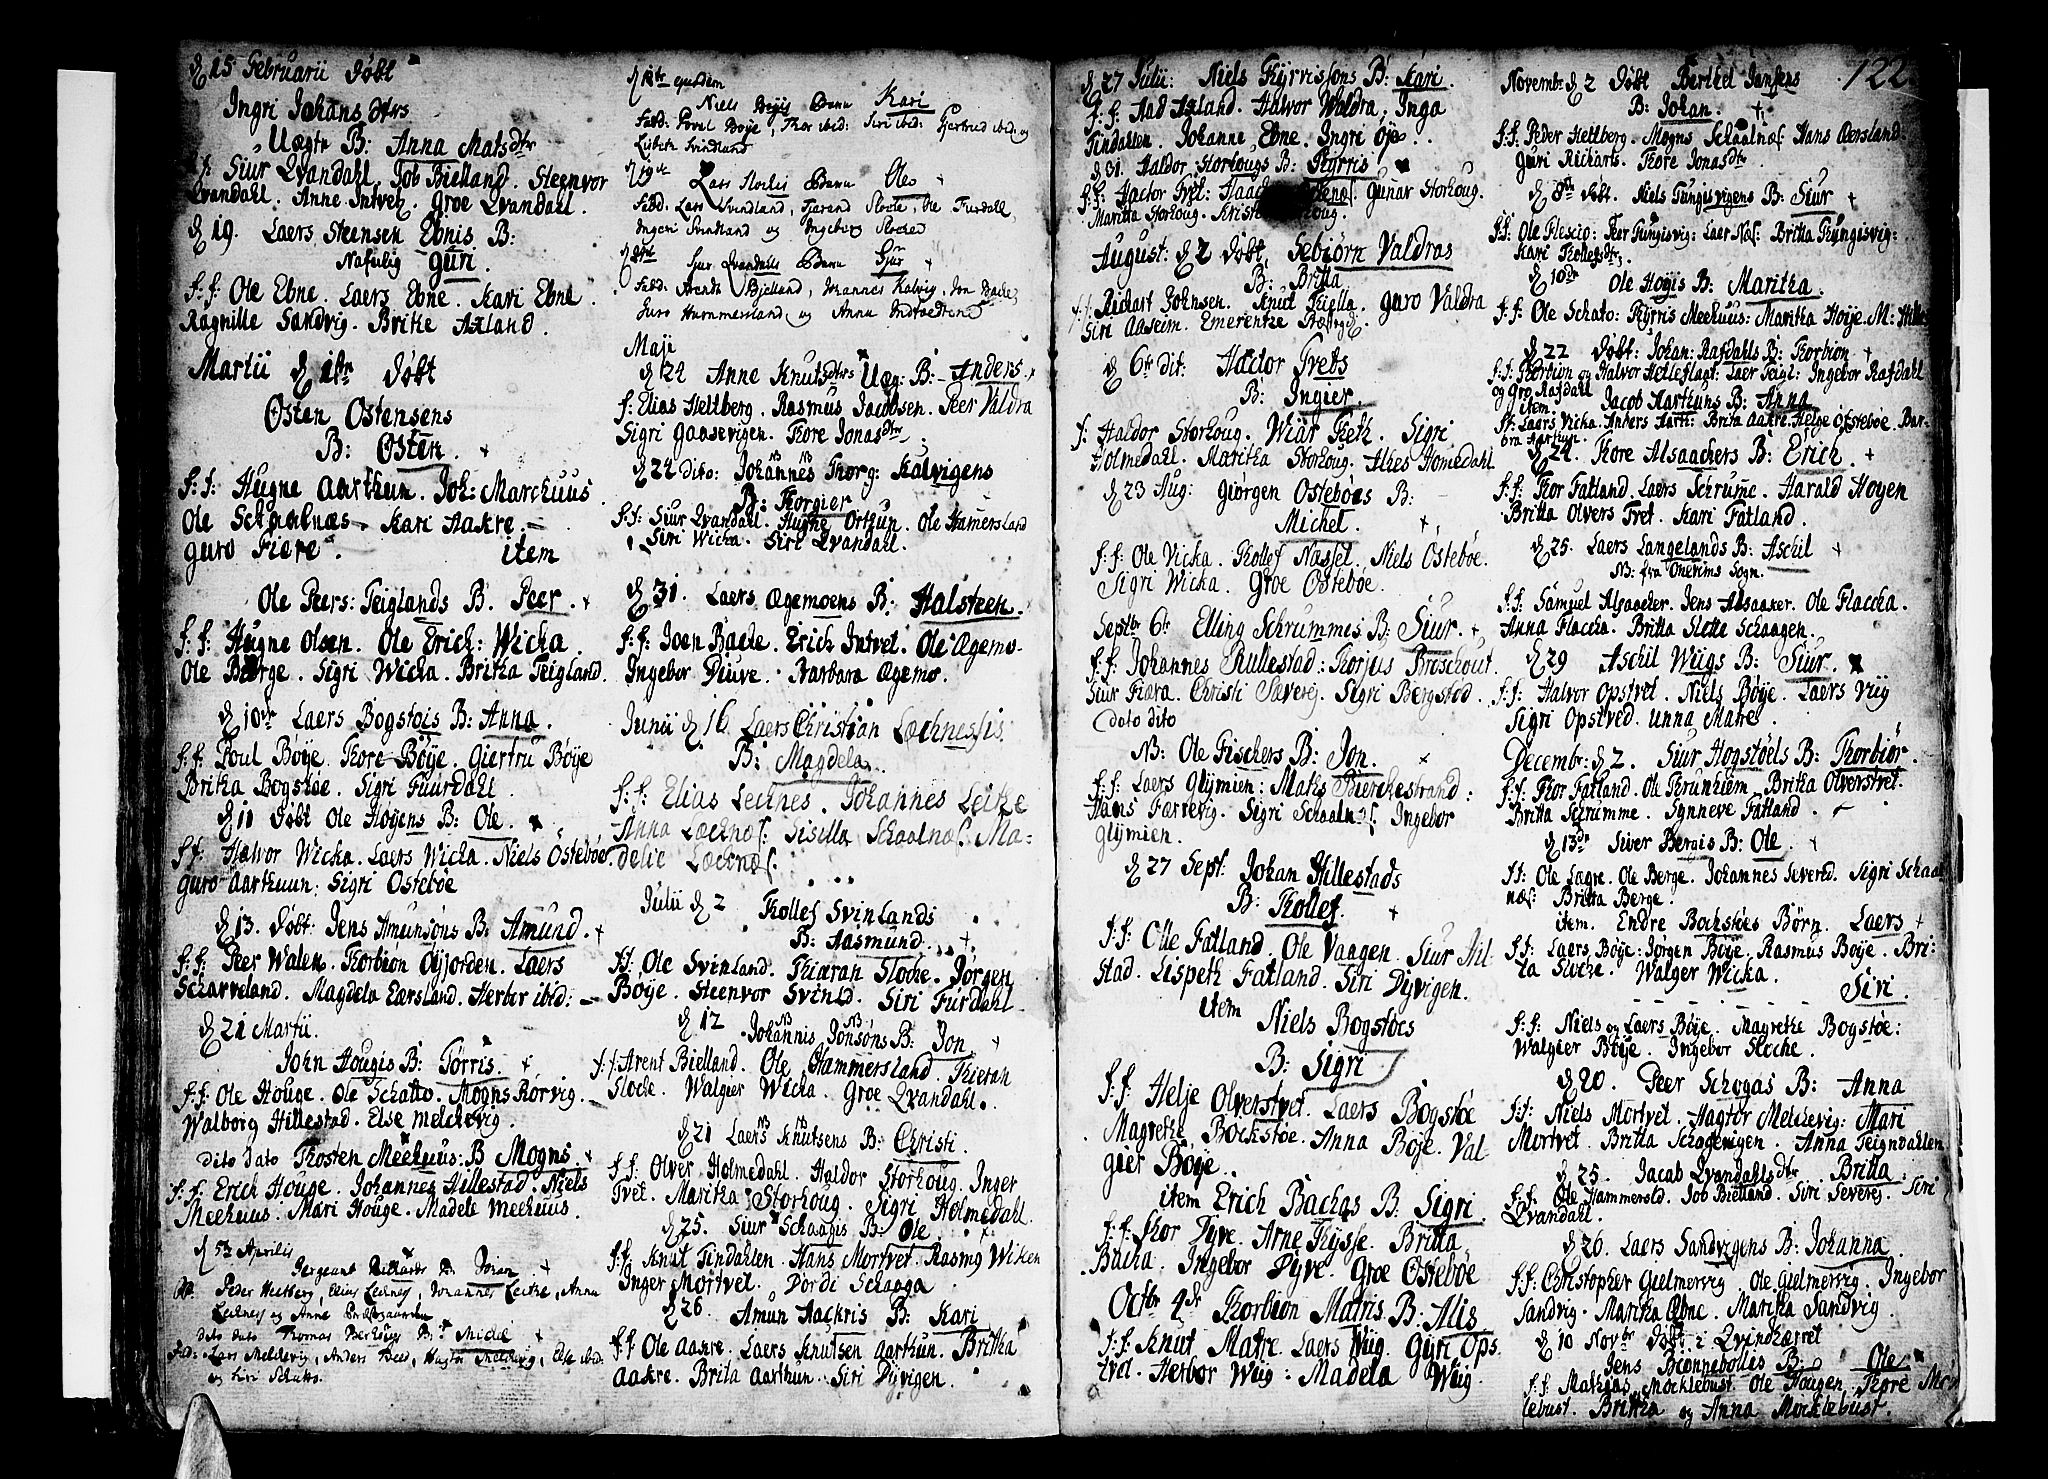 d 15 Februarii Døbt
Ingri Johans dtrs
Uægte B: Anna Mats dtr
f: Siur Qvandahl. Job Bielland. Steenvor
Qvandahl. Anne Intvet. Groe Qvandahl.
d 19. Laers Steensen Ebnis B:
Nafnlig Guri.
f: f: Ole Ebne. Laers Ebne. Kari Ebne
Ragnille Sandvig. Britte Axland.
Martii d 1ste Døbt
Østen Østensens
B: Østen.
f: f: Hugne Aarthun. Joh: Marchuus
Ole Schaalnæs. Kari Aakre.
Guro Fiære. item
Ole Peers: Teiglands B. Peer.
f: f: Hugne Olsen. Ole Erich: Wicka
Ole Berge. Sigri Wicka. Britha Teigland.
d 10de Laers Bogstøis B: Anna.
f: f: Poul Bøÿe. Thore Bøÿe. Giertru Bøÿe
Britha Bogstøe. Sigri Fuurdahl.
d 11 Døbt Ole Høÿens B: Ole.
f: f: Halvor Wicka. Laers Wicka. Niels Østebøe
Guro Aarthuun: Sigri Østebøe
d 13. Døbt: Jens Amunsøns B: Amund.
f: f: Peer Walen. Thorbion Øijorden. Laers
Scharveland. Magdela Eærsland. Herbor ibid:
d 21 Martii.
John Hougis B: Tørris.
f: f: Ole Houge. Ole Schatto. Mogns Rørvig.
Walborg Hillestad. Else Melchevig.
dito Dato Thosten Meehuus: B Mogns
f: f: Erich Houge. Johannes Hillestad. Niels
Meehuus. Mari Houge. Madele Meehuus.
d 5te Aprilis
Sergeant Richards B: Johan
Peder Heltberg, Elias Lechnes, Johannes Leithe, Anna
Lechnes og Anne
dito dato Thomas B: Michel
Fad: Lars Melchevig, Anders Bee, Hagtor Melchevig, Else ibid:
og Siri Schatto.
d 12te ejusdem
Niels Bøÿis Barn Kari
Fadd: Povel Bøÿe, Thor ibid: Siri ibid: Giertrud ibid: og
Lisbeth Svindland
d 19de
Lars Slochis Barn Ole
Fadd. Lars Svindland, Tharand Sloche, Ole Furdall,
Ingeri Svindland og Ingeborg Sloche
Sjur Qvandals Barn Sjur
Fadd: Arendt Bjelland, Johannes Kalvig, Jon Backe,
Guro Hummersland, og Anna Indtvedtene
Maji
d 22 Anne Knuts dtrs Uæg: B: Anders
f: Elias Heltberg. Rasmus Jacobsen. Peer Valdra
Sigri Gaasevigen. Thore Jonas dtr
d 22 dito: Johannes Thorg: Kalvigens
B: Thorgier
f: f: Siur Qvandahl. Hugne Orthun. Ole Hamersland
Siri Wicka. Siri Qvandahl.
d 31. Laers Ægemoens B: Halsteen.
f: f: Joen Backe. Erich Intvet. Ole Ægemo.
Ingebor Diuve. Barbara Ægemo.
Junii d 16. Laers Christian Lechnesis
B: Magdela.
f: f: Elias Lechnes. Johannes Leithe
Anna Læchnes. Sisella Schaalnæs. Ma-
delie Lechnæs.
Julii d 2 Thollef Svinlands
B: Aasmund.
f: f: Ole Svinland. Thiaran Sloche. Jørgen
Bøÿe. Steenvor Svinld. Siri Furdahl
d 12 Johannis Jonsøns B: Jon
f: f: Arent Bielland. Ole Hammersland. Thieran
Sloche. Walgier Wicka. Groe Qvandahl.
d 21 Laers Knutsens B: Christi
f: f: Olver Holmedahl. Haldor Storhoug. Inger
Tvet. Maritha Storhoug. Sigri Holmedahl.
d 25. Siur Schaagis B: Ole
f: f: Knut Tindahlen. Hans Mortvet. Rasmg Wiken
Inger Mortvet. Dordi Schaaga
d 26. Amun Aackris B: Kari
f: f: Ole Aakre. Laers Knutsen Aarthun. Britha
Aakre. Brita Aarthun. Siri Dÿvigen.
122
d 27 Julii: Niels Thÿrrissøns B: Kari.
f: f: Aad Axland. Halvor Waldra. Inga
Tindahlen. Johanne Ebne. Ingri Øje.
d 31. Haldor Storhougs B: Thÿrris
f: f: Hactor Tvet: Gunar Storhoug.
Maritta Storhoug.
August: d 2 Døbt, Sebiørn Valdras
B: Britta
f: f: Richart Johnsen. Knut Thiella. Guro Valdra
Siri Aaseim. Emerentze
d 6te dit: Hactor Tvets
B: Ingier.
f: Haldor Storhoug. Wiar Theth. Sigri
Holmedahl. Maritha Storhoug. Alhes Homedahl
d 23 Aug: Giørgen Østebøes B:
Michel.
f: f: Ole Vicka. Thollef Næssel. Niels Østebøe.
Sigri Wicka. Groe Østebøe.
Septbr 6te Elling Schrummes B: Siur.
f: f: Johannes Thullestad: Thorjus Broschout.
Siur Fiæra. Christi Sæverej. Sigri Bergstad.
dato dito
N: Ole Fischers B: Jon.
f: f: Laers Glÿmien: Maths Bierchestrand:
Hans Farrevig. Sigri Schaalnæs. Ingebor
Glÿmien.
d 27 Sept. Johan Hillestads
B: Thollef.
f: f: Olle Fatland. Ole Vaagen. Siur Hil-
stad. Lispeth Fatland. Siri Dÿvigen.
item
Niels Bogstøes
B: Sigri
f: f: Helje Olverstvet. Laers Bogstøe
Magrethe Bochstøe. Anna Bøje. Val-
gier Bøÿe.
item Erich Bachas B: Sigri.
f: f: Thor Dÿve. Arne Thÿsse. Britta
Bacha. Ingebor Dÿve. Groe Østebøe
Octbr 4de Thorbion Matris B: Alis
f: f: Knut Matre. Laers Wiig. Gÿri Ops.
tvet. Herbor Wiig: Madela Wiig.
Novembr d 2 Døbt Berthel Jansens
B: Johan.
f: f: Peder Heltberg. Mogns Schaalnæs. Hans Aersland.
Guri Richarts. Thore Jonas dtr
d 8de Døbt. Niels Tungisvigens B: Siur
f: f: Ole Flescio: Peer Tungisvig: Laer Næs: Britha Thungisvig:
Kari Thollefs dtr,
d 10de Ole Høÿis B: Maritha.
f: f: Ole Schato: Thÿrris Meehuus: Maritha Høije. M: Hille
d 22 Døbt: Johan: Rafdahls B: Thorbion
f: f: Thorbion og Halvor Hetleflaat: Laer Teigl: Ingebor Rafdahl
og Gro Rafdahl
item. Jacob Aarthuns B: Anna
f: f: Laers Vicka. Anders Aarth: Brita Aakre. Helge Østebøe. Bar-
bra Aarthun.
d 24. Thore Alsaachers B: Erich.
f: f: Thor Fatland. Laers Schrume. Harald Høÿen
Britta Olvers Tvet. Kari Fatland.
d 25. Laers Langelands B: Aschil
NB: fra Ønerims Sogn.
f: f: Samuel Alsaacker. Jens Alsaaker. Ole Flaccha.
Anna Flaccha. Britta Slotte Schaagen.
d 29 Aschil Wiigs B: Siur.
f: f: Halvor Opstvet. Niels Bøÿe. Laers Viig
Sigri Opstved. Unna Matre
Decembr: d 2. Siur Hogstøels B: Thorbiør.
f: f: Thor Fatland. Ole Thrunhiem. Britha Olverstvet.
Britta Schrumme. Synneve Fatland.
d 13de Siver Bergis B: Ole.
f: f: Ole Lagre. Ole Berge. Johannes Severed. Sigri Schaal
næs: Britta Berge.
item. Endre Bochstøes Børn. Laers
f: f: Laers Bøÿe. Jørgen Bøÿe. Rasmus Bøÿe. Bri-
ta Sloche. Walger Wicka.
Siri.
f: f: Niels og Laers Bøÿe. Magrethe Bogstøe:
Walgier Bøÿe. Ingebor Sloche.
d 20. Peer Schogas B: Anna
f: f: Niels Mortvet. Hagtor Melchevig: Mari
Mortvet. Britta Schogevigen. Anna Teigndahlen
d 25. Jacob Qvandahls dtr Britta.
f: f: Ole Hammersld. Job Bielland. Siri Severej. Siri
Qvandahl.
d 26. Laers Sandvigens B: Johanna
f: f: Christopher Gielmervig. Ole Gielmervig. Ingebor
Sandvig. Maritha Ebne. Maritha Sandvig.
d 10 Novbr Døbt i Qvindhæret
Jens Bionnebolles B: Ole
f: f: Mathias Mochlebust. Ole Hougen. Thore Moch
lebust. Britha og Anna Mochlebust.